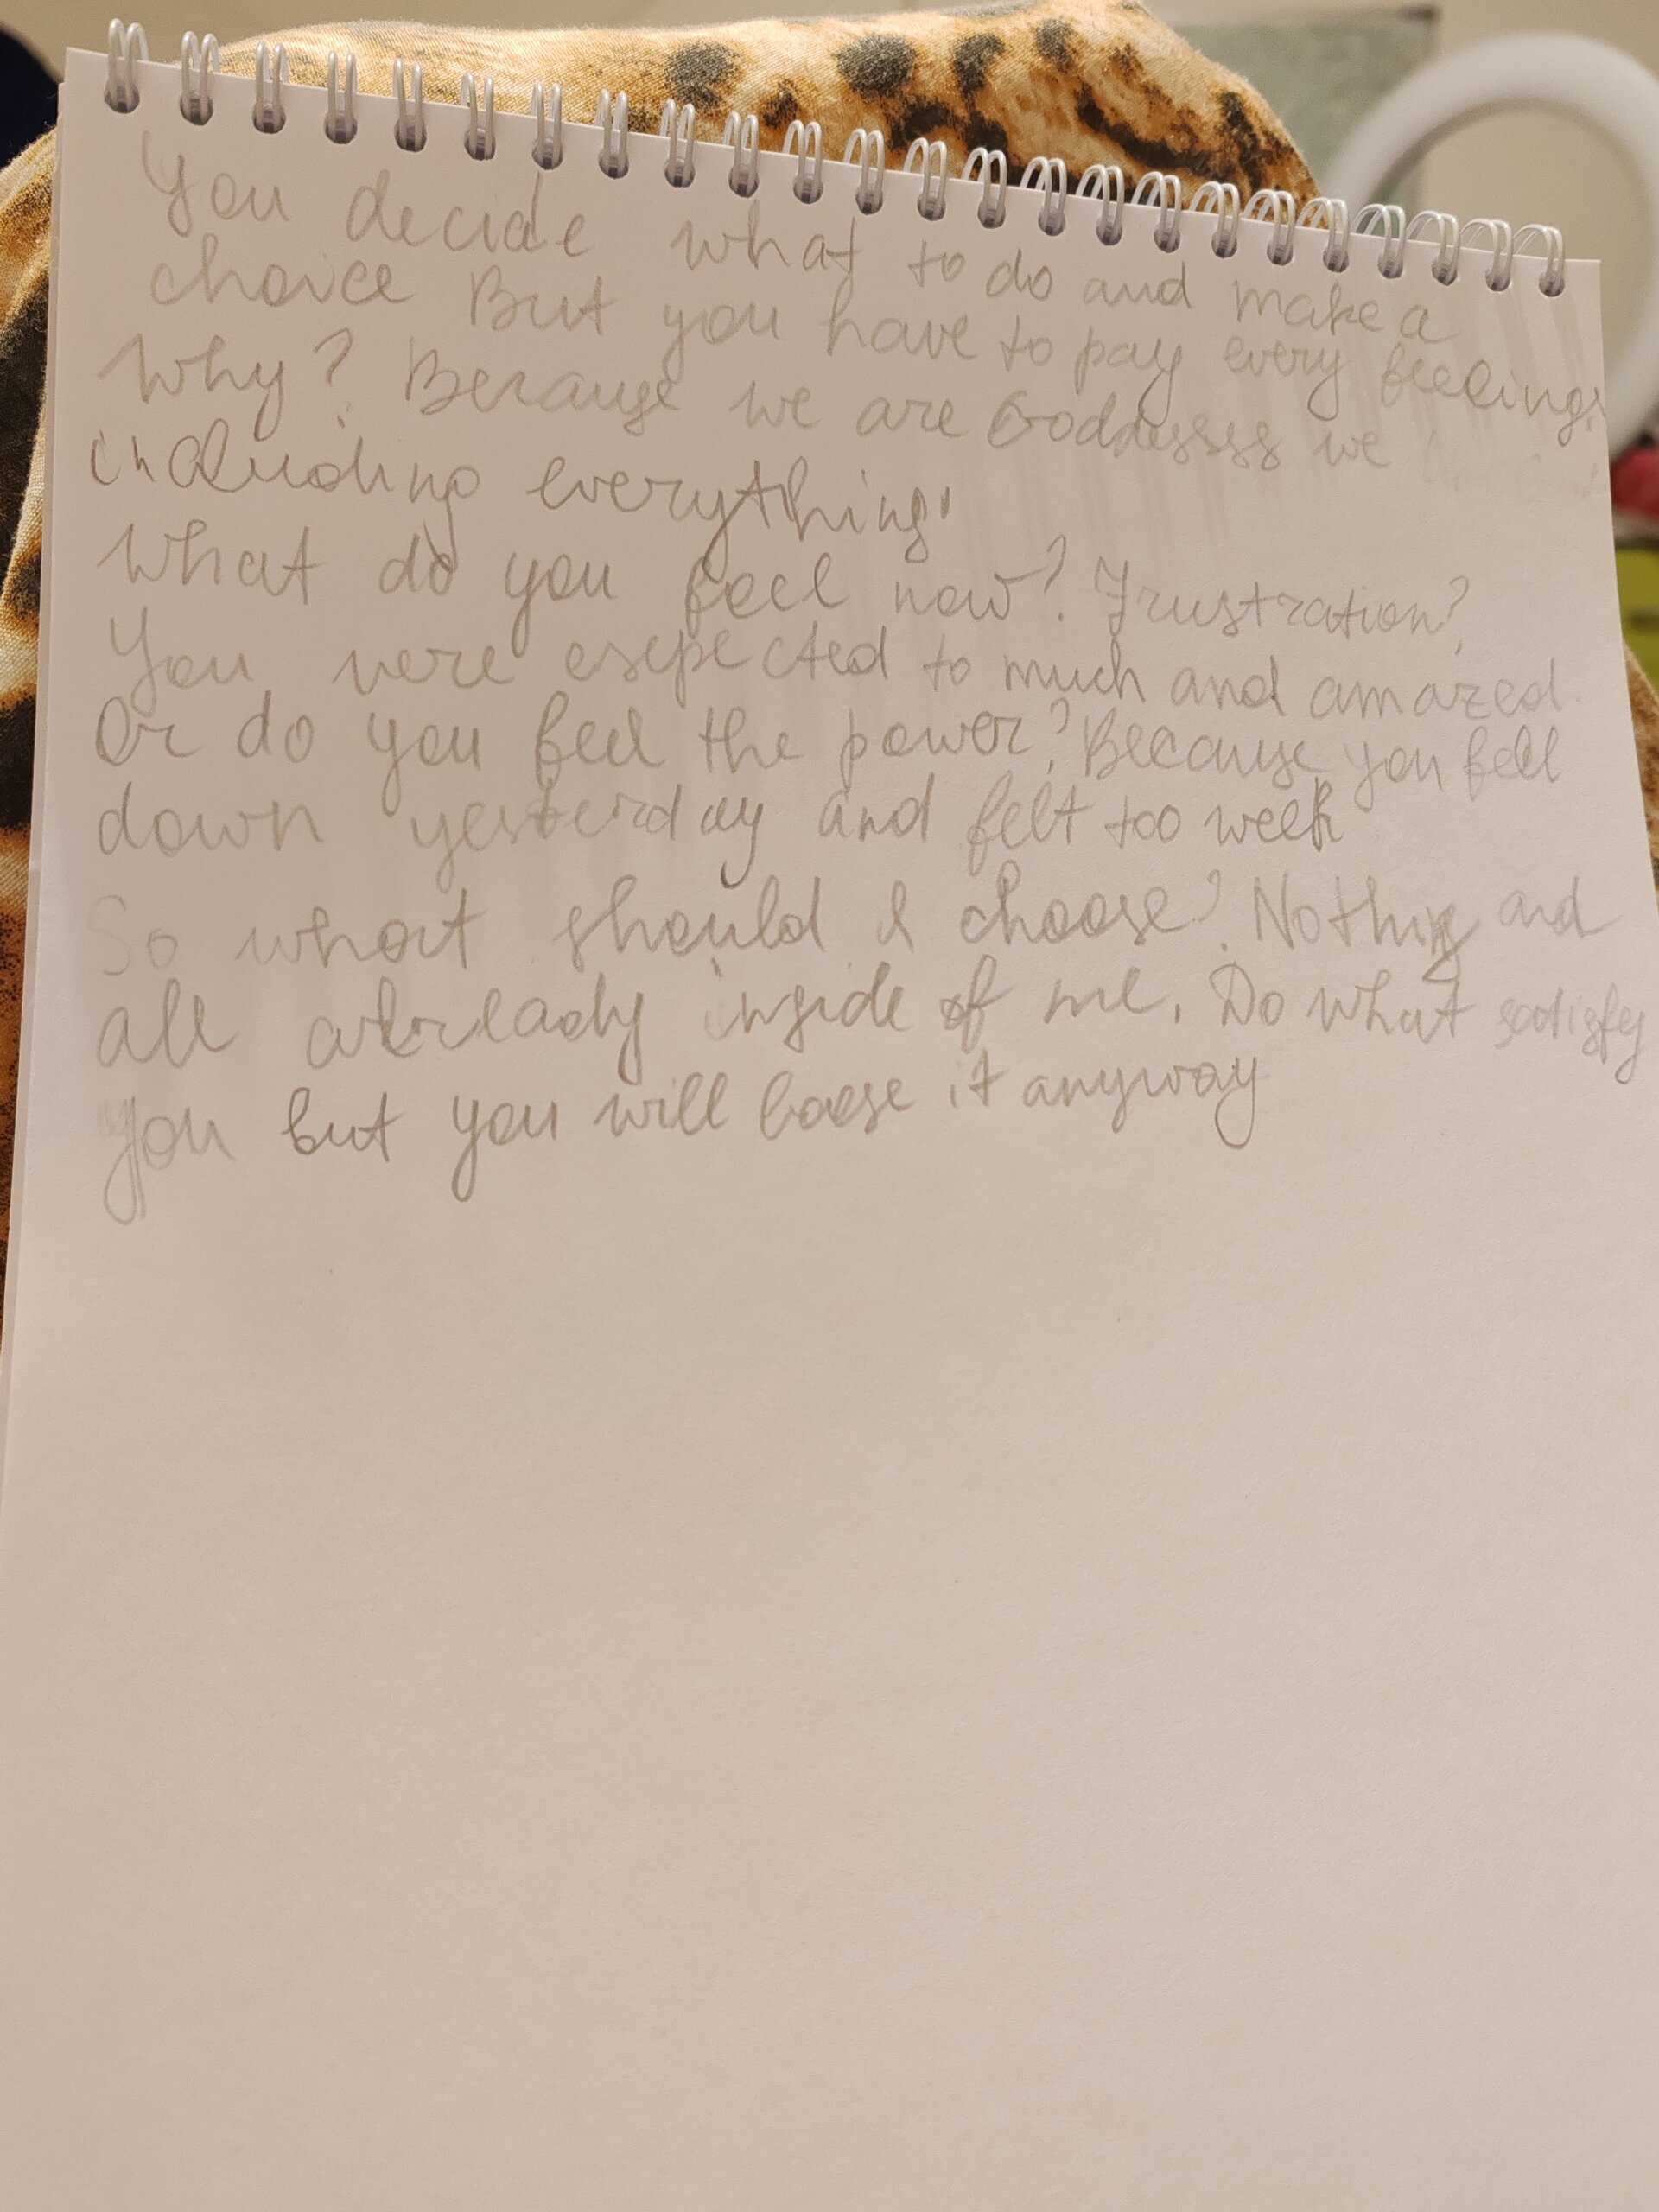 You decide what to do and make a
choice But you have to pay every feelings
Why? Because we are Goddessss we
including everything
What do you feel now? Frustration?
You were esepected to much and amazed.
Or do you feel the power? Because you fell
down yesterday and felt too week
So what should I choose? Nothing and
all already inside of me. Do what satisfy
you but you will loose it anyway